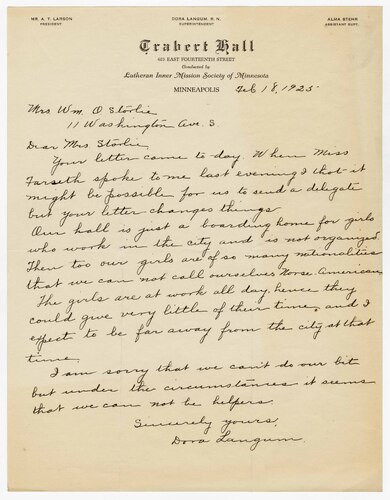 MR. A. T. LARSON
PRESIDENT
DORA LANGUM, R. N.
SUPERINTENDENT
ALMA STEHR
ASSISTANT SUPT.
Trabert Hall
615 EAST FOURTEENTH STREET
Conducted by
Lutheran Inner Mission Society of Minnesota
MINNEAPOLIS Feb 18, 1925
Mrs Wm. O Storlie
11 Washington Ave. S.
Dear Mrs. Storlie,
Your letter came to day. When Miss
Farseth spoke to me last evening I that it
might be possible for us to send a delegate
but your letter changes things.
Our hall is just a boarding home for girls
who work in the city and is not organized.
Then too our girls are of so many nationalities
that we can not call ourselves Norse American.
The girls are at work all day, hence they
could give very little of their time, and I
expect to be far away from the city at that
time.
I am sorry that we can't do our bit
but under the circumstances it seems
that we can not be helpers.
Sincerely yours,
Dora Langum.